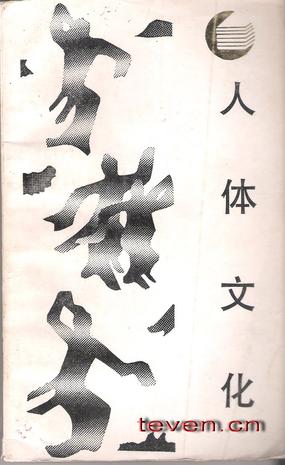 人体文化
tevem.cn